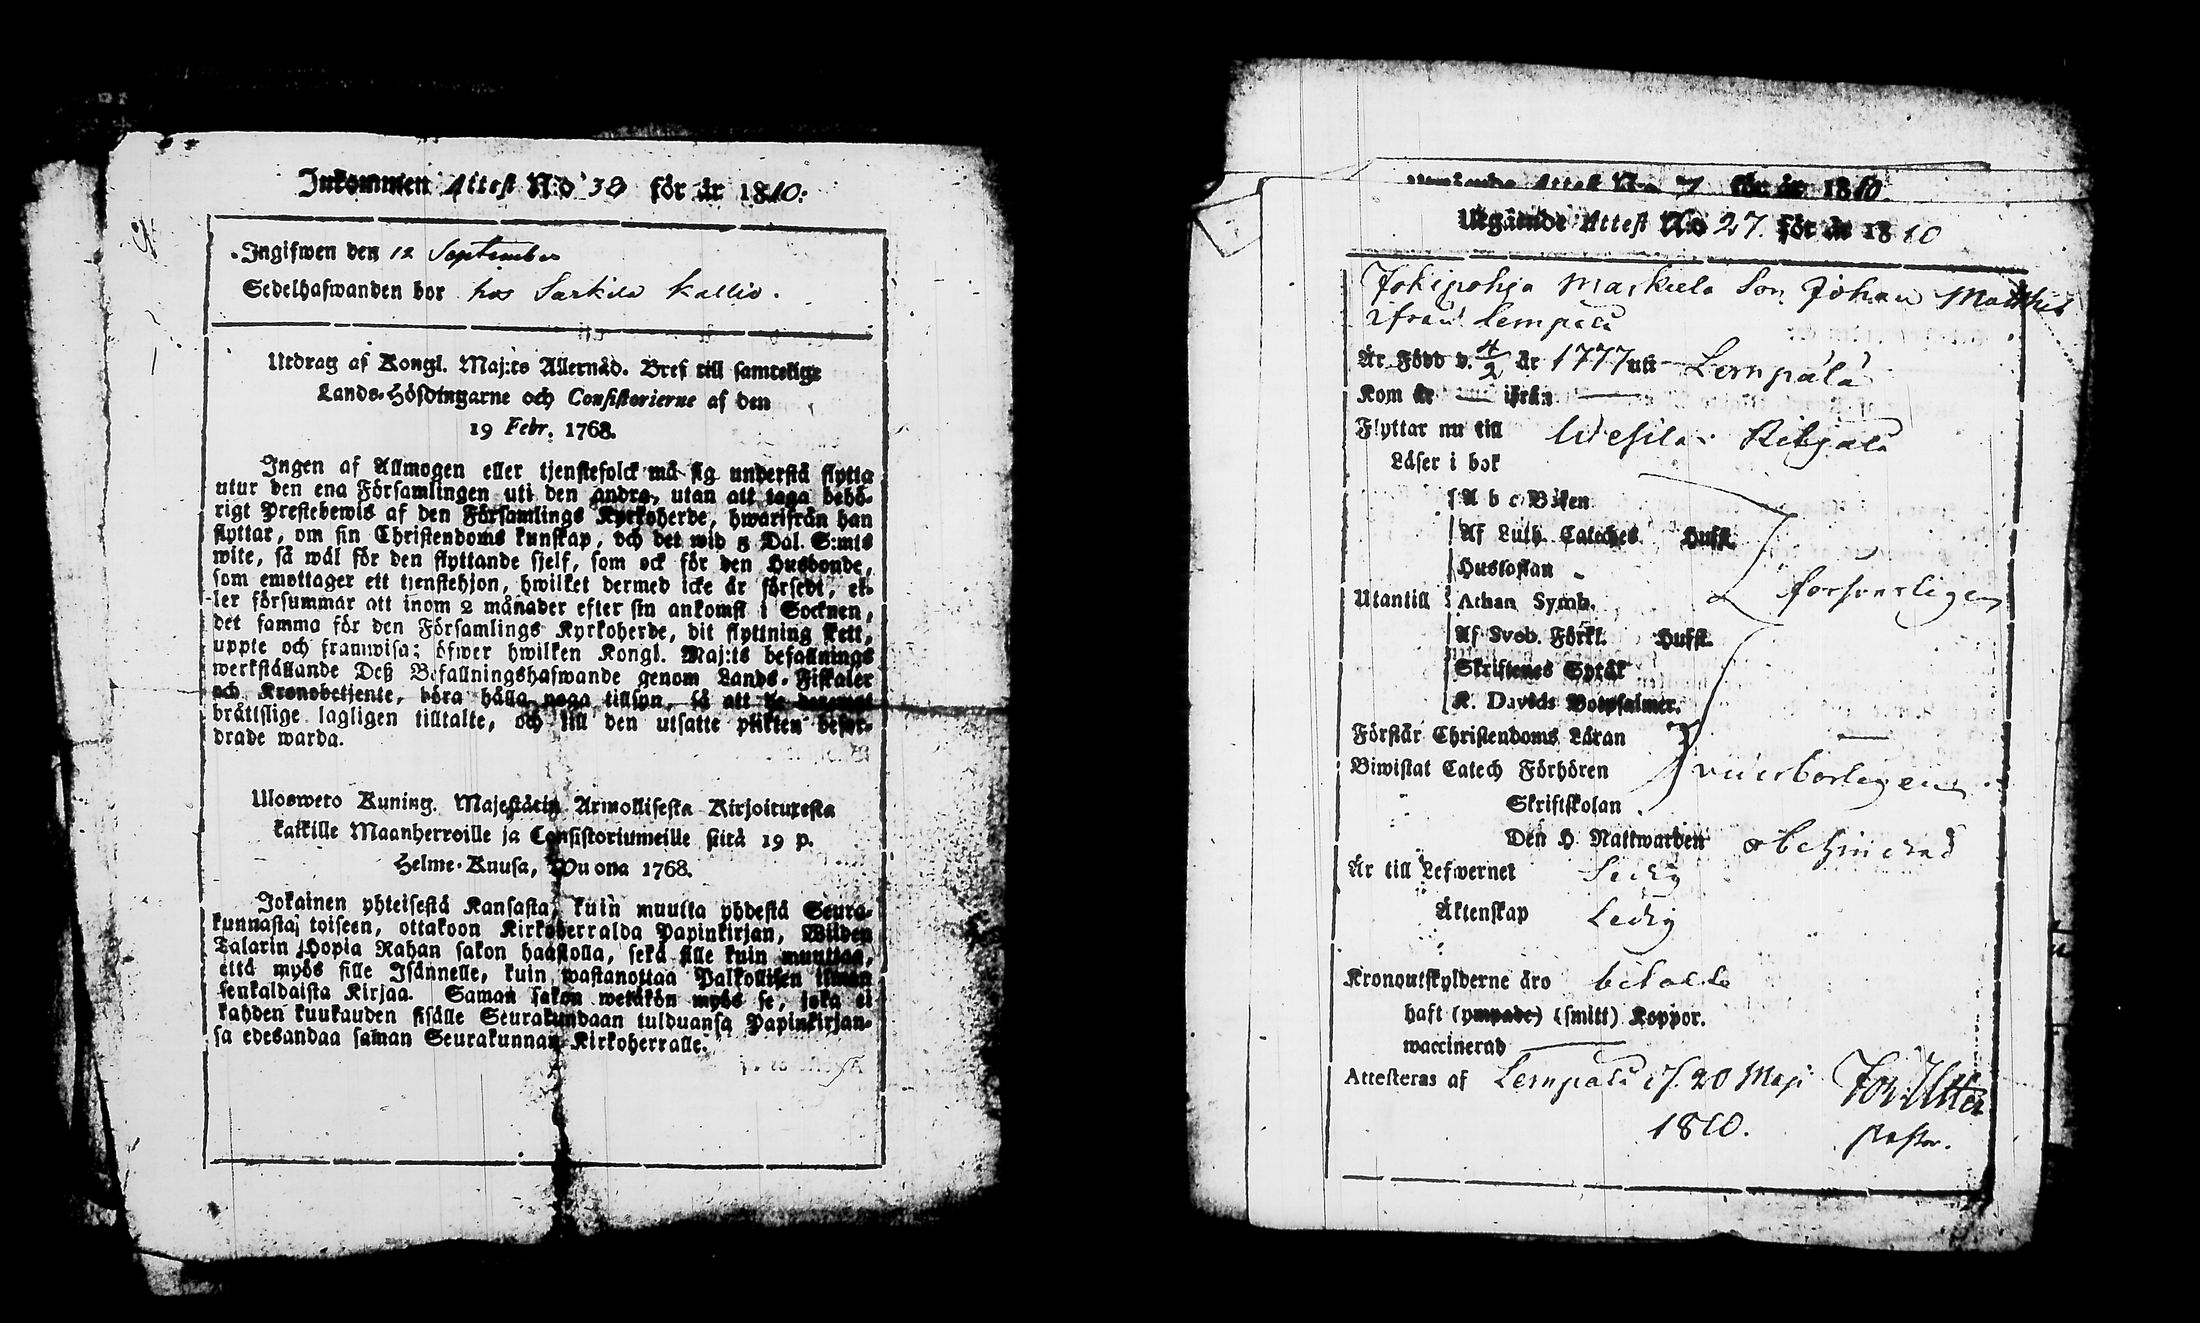 Inkommen Attest N:o 38 för år 1810:
Ingifwen den 12 September
Sedelhafwanden bor hos Sarkila Kallio.
Utdrag af Kongl. Maj:ts Allernåd. Bref till samtelige
Lands-Höfdingarne och Consistorierne af den
19 Febr. 1768.
Ingen af Allmogen eller tjenstefolck må sig understå flytta
utur den ena Församlingen uti den andra, utan att taga behö-
rigt Prestebewis af den Församlings Kyrkoherde, hwarifrån han
flyttar, om sin Christendoms kunskap, och det wid 5 Dal. S:mts
wite, så wäl för den flyttande sjelf, som ock för den Husbonde,
som emottager ett tjenstehjon, hwilket dermed icke är försedt, el-
ler försummar att inom 2 månader efter sin ankomst i Socknen,
det samma för den Församlings Kyrkoherde, dit flyttning skett,
uppte och framwisa; öfwer hwilken Kongl. Maj:ts befallnings
werkställande Deß Befallningshafwande genom Lands-Fiskaler
och Kronobetjente, böra hålla noga tillsyn, så att
bråttslige lagligen tilltalte, och till den utsatte plikten befor-
drade warda.
Ulosweto Kuning. Majestätin Armollisesta Kirjoituxesta
kaikille Maanherroille ja Consistoriumeille siitä 19 p.
Helme-Kuusa, Wuona 1768.
Jokainen yhteisestä Kansasta, kuin muutta yhdestä Seura-
kunnasta toiseen, ottakoon Kirkoherralda Papinkirjan, Wiiden
Talarin Hopia Rahan sakon haastolla, sekä sille kuin muuttaa,
että myös sille Isännelle, kuin wastanottaa Palkollisen ilman
senkaldaista Kirjaa. Saman sakon wetäkön myös se, joka ei
kahden kuukauden sisälle Seurakundaan tulduansa Papinkirjan-
sa edesandaa saman Seurakunnan Kirkoherralle.
Utgående Attest N:o 7 för år 1810.
Utgående Attest No 27. för år 1810
Jokipohja Maskiela Son Johan Matthis
ifrån Lempälä
Är Född d. 4/2 år 1777 uti Lempälä
Kom år — ifrån —
Flyttar nu till Wesila
Läser i bok
A b c Boken
Af Luth. Cateches Husst.
Hustaflan
Utantill Athan Symb.
Af Sveb. Förkl. Husst.
Skriftenes Språk
K. Davids Botpsalmer.
försvarligen
Förstår Christendoms Läran
Biwistat Catech Förhören
Skriftskolan
Den H. Nattwarden obehindrad
Är till Lefwernet Sedig
Äktenskap Ledig
Kronoutskylderne äro betalte
haft (ympade) (smitt) Koppor.
waccinerad
Attesteras af Lempälä d. 20 Maji
1810.
Pastor.